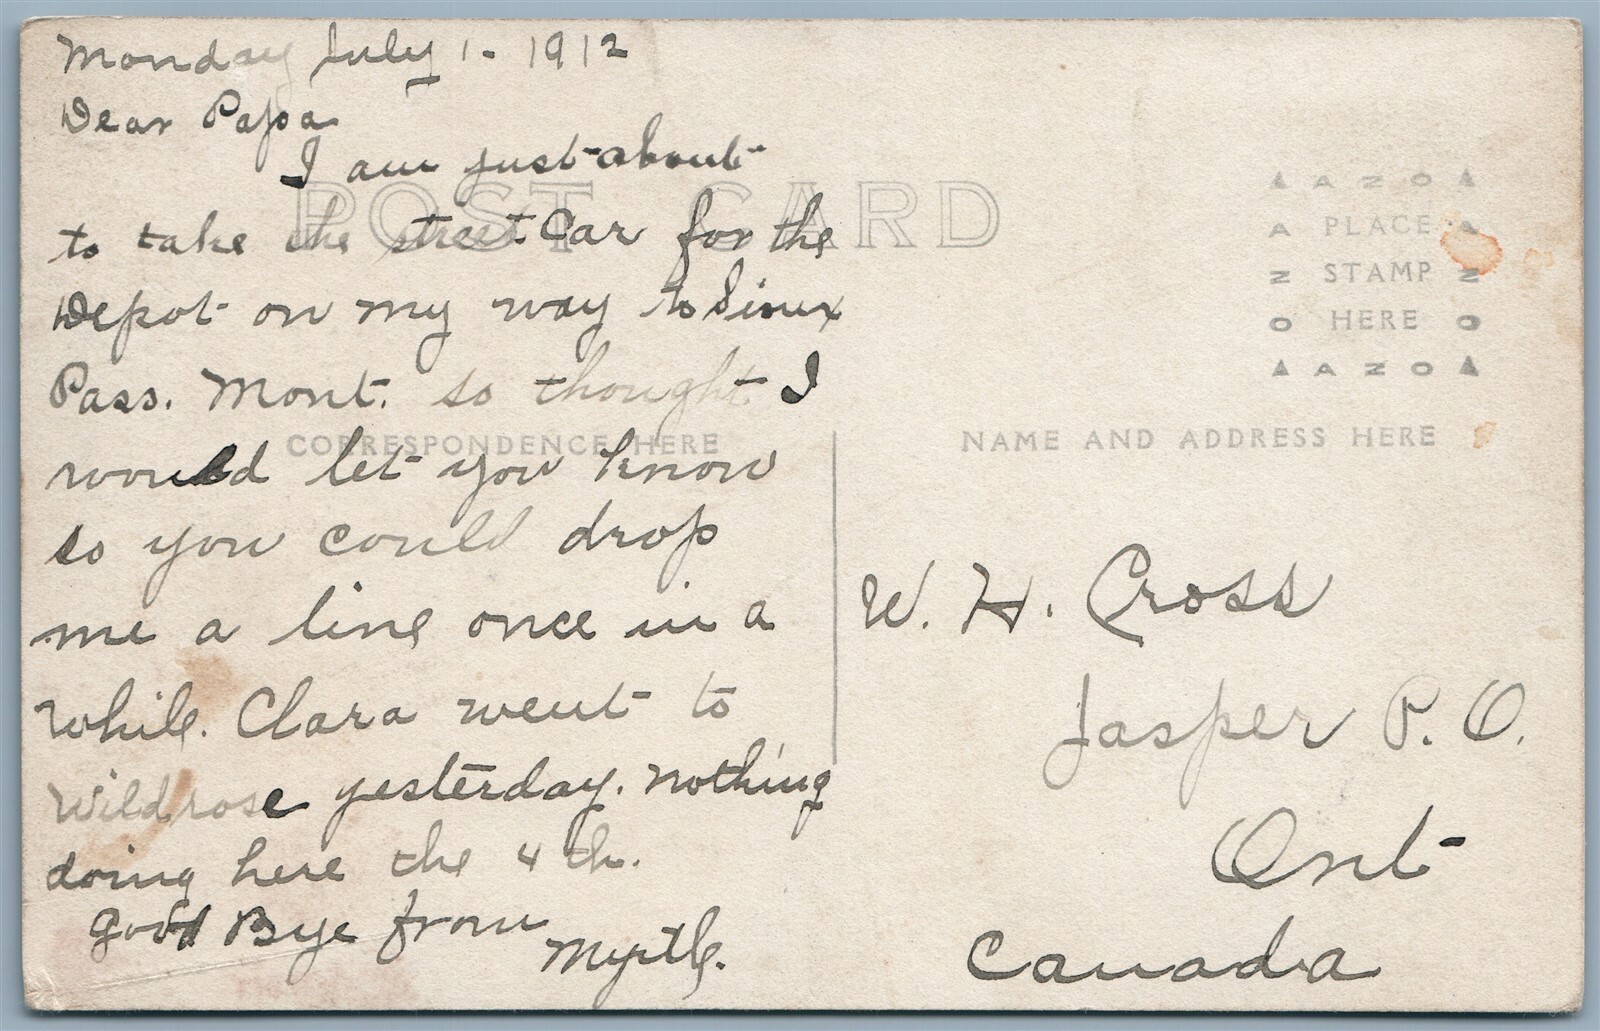 Monday July 1 - 1912
Dear Papa
I am just about
to take the street car for the
Depot on my way to Sioux
Pass. Mont. so thought I
would let you know
so you could drop
me a line once in a
while. Clara went to
Wildrose yesterday. nothing
doing here the 4th.
good Bye from
Myrtle.
POST CARD
CORRESPONDENCE HERE
AZO
PLACE
STAMP
HERE
AZO
AZO
AZO
NAME AND ADDRESS HERE
W. H. Cross
Jasper P. O.
Ont
Canada